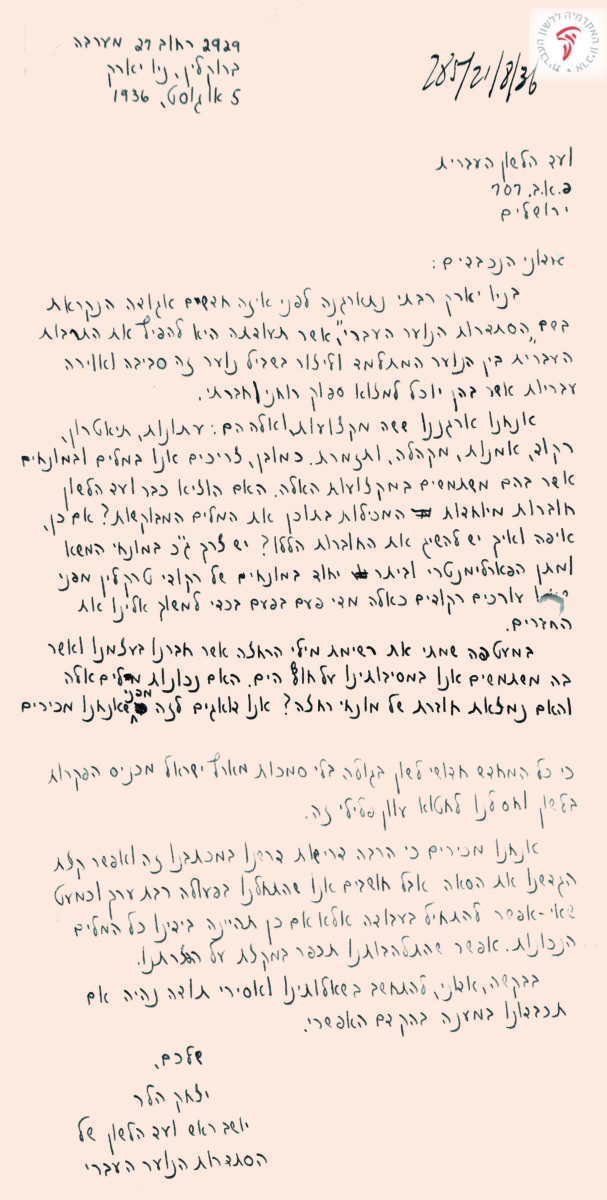 האקדמיה ללשון העברית
2929 רחוב 27 מערבה
ברוקלין, ניו יארק
5 אוגוסט, 1936
285/21/8/36
ועד הלשון העברית
פ.א.ב. 707
ירושלים
אדוני הנכבדים:
בניו יארק רבתי נתארגנה לפני איזה חדשים אגודה הנקראת
בשם "הסתדרות הנוער העברי", אשר תעודתה היא להפיץ את התרבות
העברית בין הנוער המתלמד וליצור בשביל נוער זה סביבה ואוירה
עבריות אשר בהן יוכל למצוא ספוק רוחני וחברתי.
אנחנו ארגננו ששה מקצועות, ואלה הם: עתונות, תיאטרון,
רקוד, אמנות, מקהלה, ותזמרת. כמובן, צריכים אנו במלים ובמונחים
אשר בהם משתמשים במקצועות האלה. האם הוציא כבר ועד הלשון
חוברות מיוחדות המכילות בתוכן את המלים המבוקשות? אם כן,
איפה ואיך יש להשיג את החוברות הללו? יש צרך ג"כ במונחי המשא
ומתן הפארלימנטרי וביתר יחוד במונחים של רקודי טרקלין מפני
עורכים רקודים כאלה מדי פעם בפעם בכדי למשוך אלינו את
החברים.
במעטפה שמתי את רשימת מילי הרחצה אשר חברנו בעצמנו ואשר
בה משתמשים אנו במסיבותינו על חוף הים. האם נכונות מלים אלה
והאם נמצאת חוברת של מונחי רחצה? אנו דואגים לזה מפני שאנחנו מכירים
כי כל המחדש חדושי לשון בגולה בלי סמכות מארץ ישראל מכניס הפקרות
בלשון וחס לנו לחטוא עוון פלילי זה.
אנחנו מכירים כי הרבה דרישות דרשנו במכתבנו זה ואפשר קצת
הגדשנו את הסאה אבל חושבים אנו שהתחלנו בפעולה רבת ערך וכמעט
שאי-אפשר להתחיל בעבודה אלא אם כן תהיינה בידינו כל המלים
הנכונות. אפשר שהתלהבותנו תכפר במקצת על הפצרתנו.
בבקשה, אדוני, להתחשב בשאלותינו ואסירי תודה נהיה אם
תכבדונו במענה בהקדם האפשרי.
שלכם,
יצחק הלר
יושב ראש ועד הלשון של
הסתדרות הנוער העברי